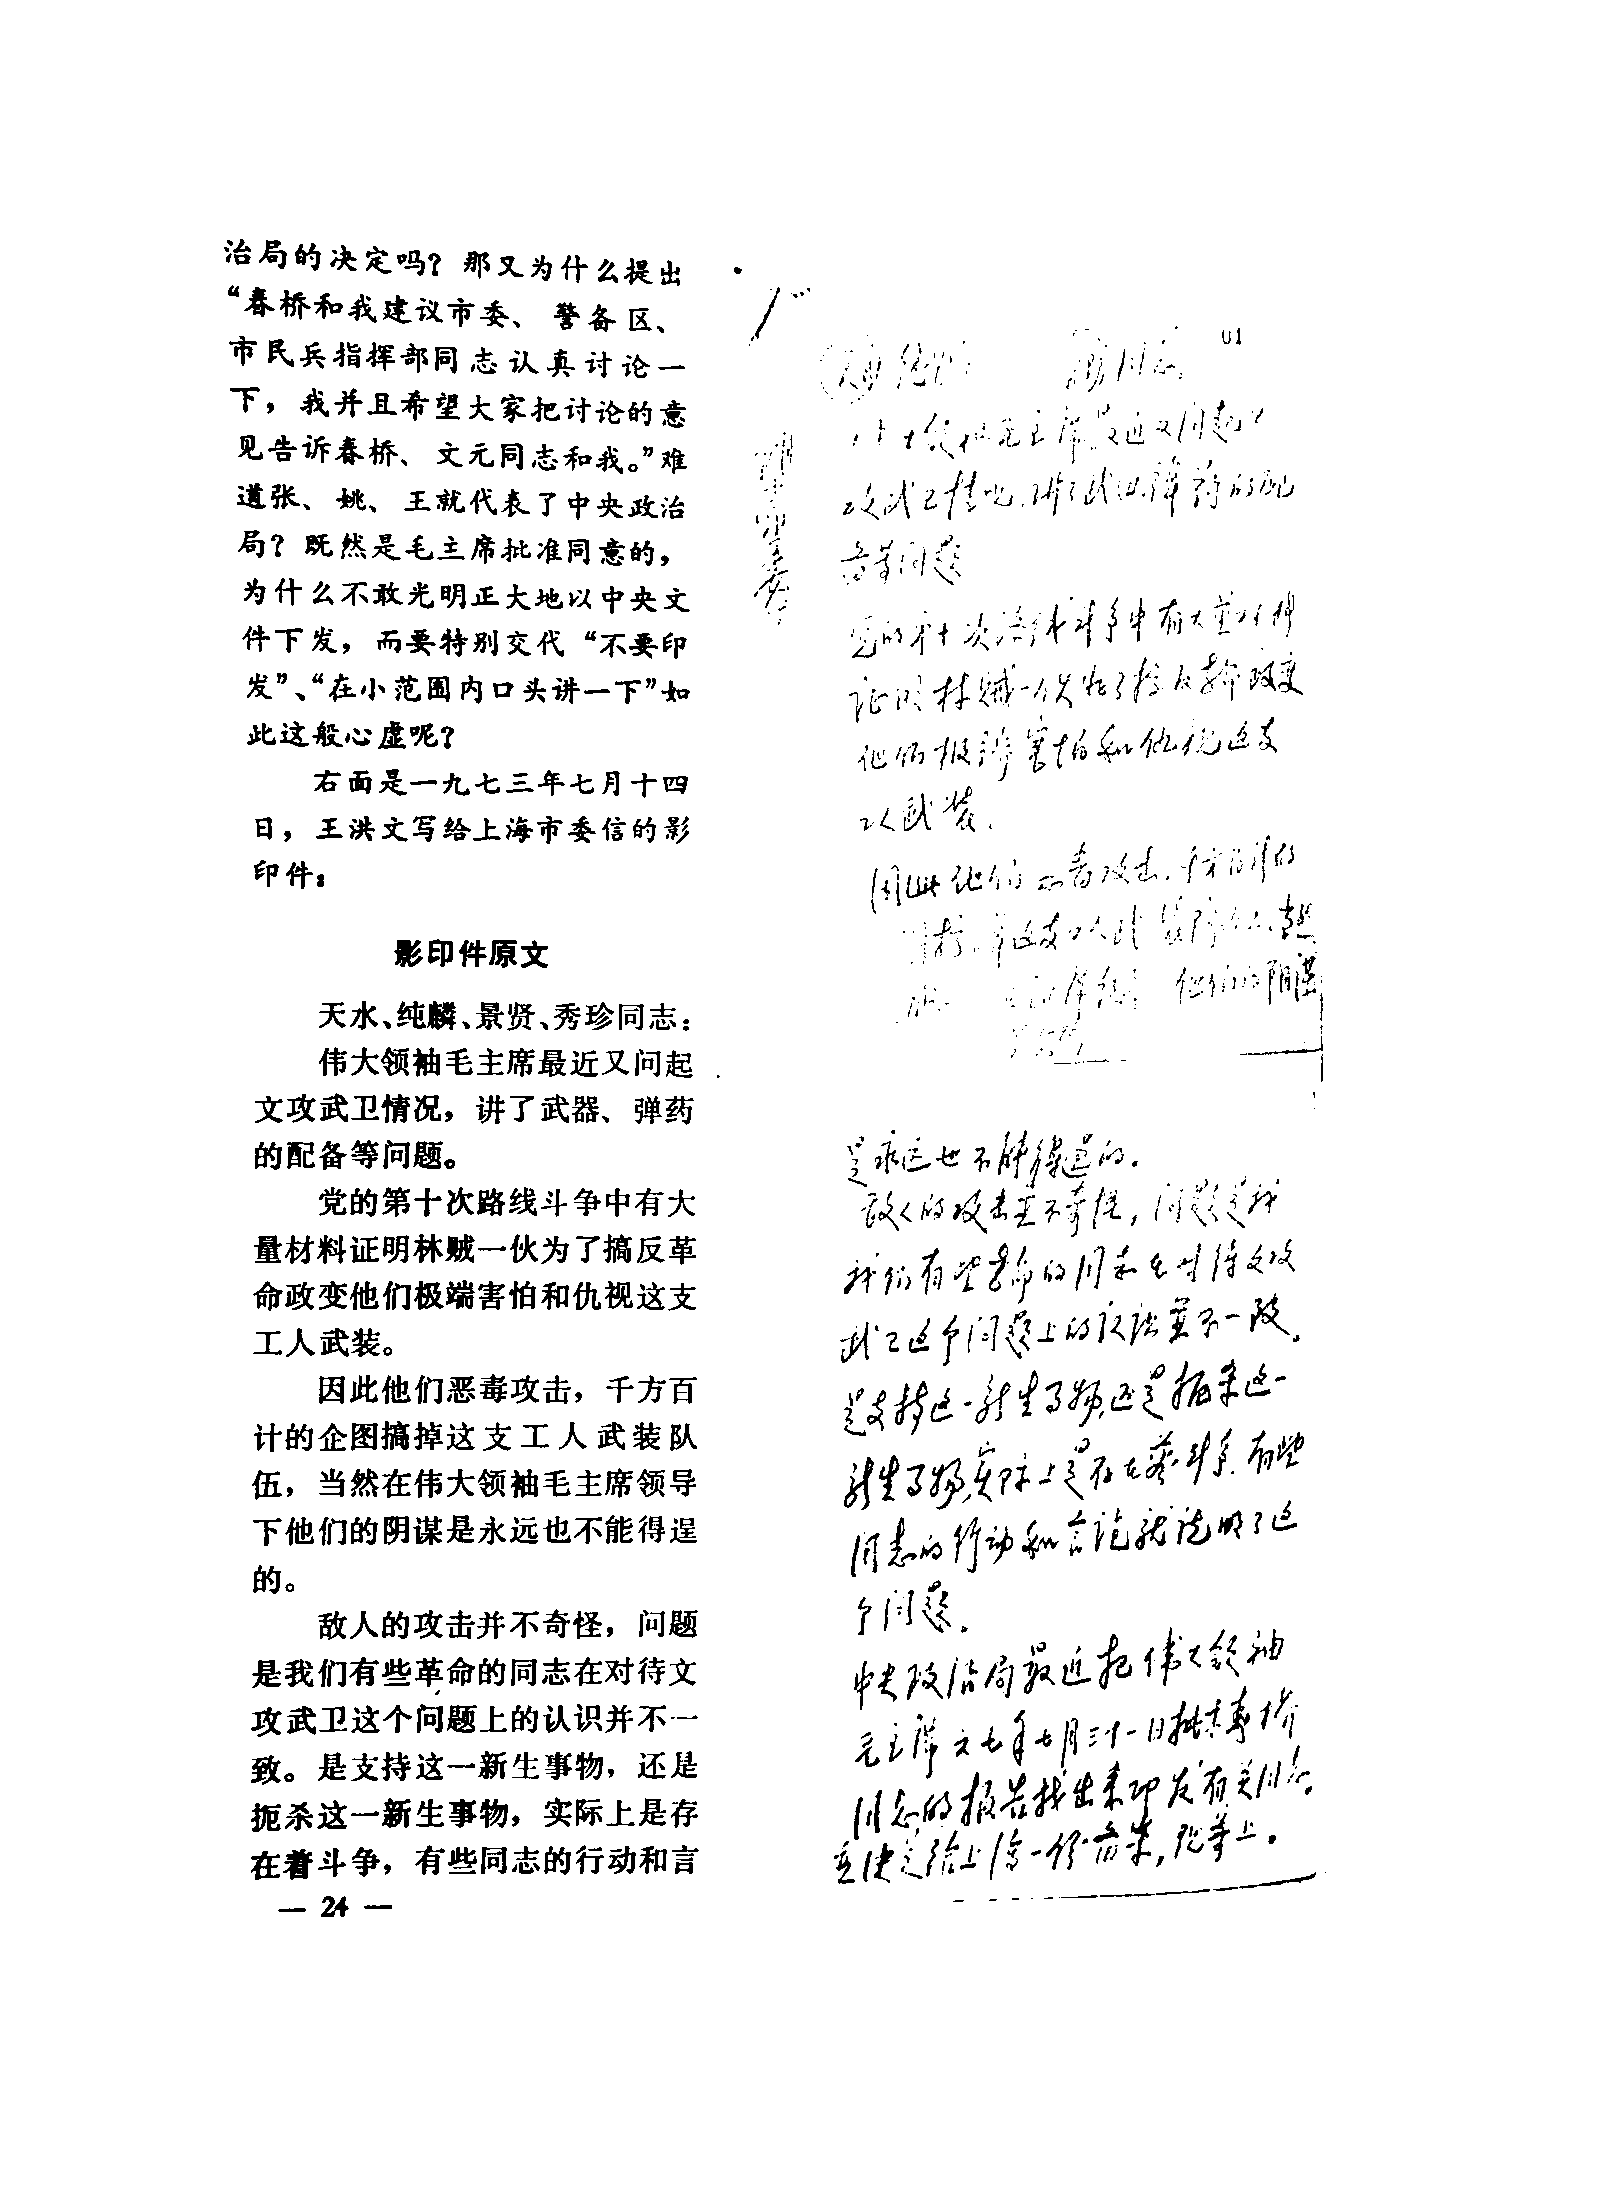 治局的决定吗？那又为什么提出
“春桥和我建议市委、警备区、
市民兵指挥部同志认真讨论一
下，我并且希望大家把讨论的意
见告诉春桥、文元同志和我。”难
道张、姚、王就代表了中央政治
局？既然是毛主席批准同意的，
为什么不敢光明正大地以中央文
件下发，而要特别交代“不要印
发”、“在小范围内口头讲一下”如
此这般心虚呢？
右面是一九七三年七月十四
日，王洪文写给上海市委信的影
印件：
影印件原文
天水、纯麟、景贤、秀珍同志：
伟大领袖毛主席最近又问起
文攻武卫情况，讲了武器、弹药
的配备等问题。
党的第十次路线斗争中有大
量材料证明林贼一伙为了搞反革
命政变他们极端害怕和仇视这支
工人武装。
因此他们恶毒攻击，千方百
计的企图搞掉这支工人武装队
伍，当然在伟大领袖毛主席领导
下他们的阴谋是永远也不能得逞
的。
敌人的攻击并不奇怪，问题
是我们有些革命的同志在对待文
攻武卫这个问题上的认识并不一
致。是支持这一新生事物，还是
扼杀这一新生事物，实际上是存
在着斗争，有些同志的行动和言
— 24 —
01
备等问题
党的第十次路线斗争中有大量材料
证明林贼一伙为了搞反革命政变
他们极端害怕和仇视这支
工人武装.
因此他们恶毒攻击.千方百计的
他们的阴谋
是永远也不能得逞的.
敌人的攻击并不奇怪，问题是我
我们有些革命的同志在对待文攻
武卫这个问题上的认识并不一致.
是支持这一新生事物,还是扼杀这一
新生事物,实际上是存在着斗争.有些
同志的行动和言论就说明了这
个问题.
中央政治局最近把伟大领袖
毛主席六七年七月三十一日批示春桥
同志的报告找出来印发有关同志.
并决定给上海一份备案,现送上.